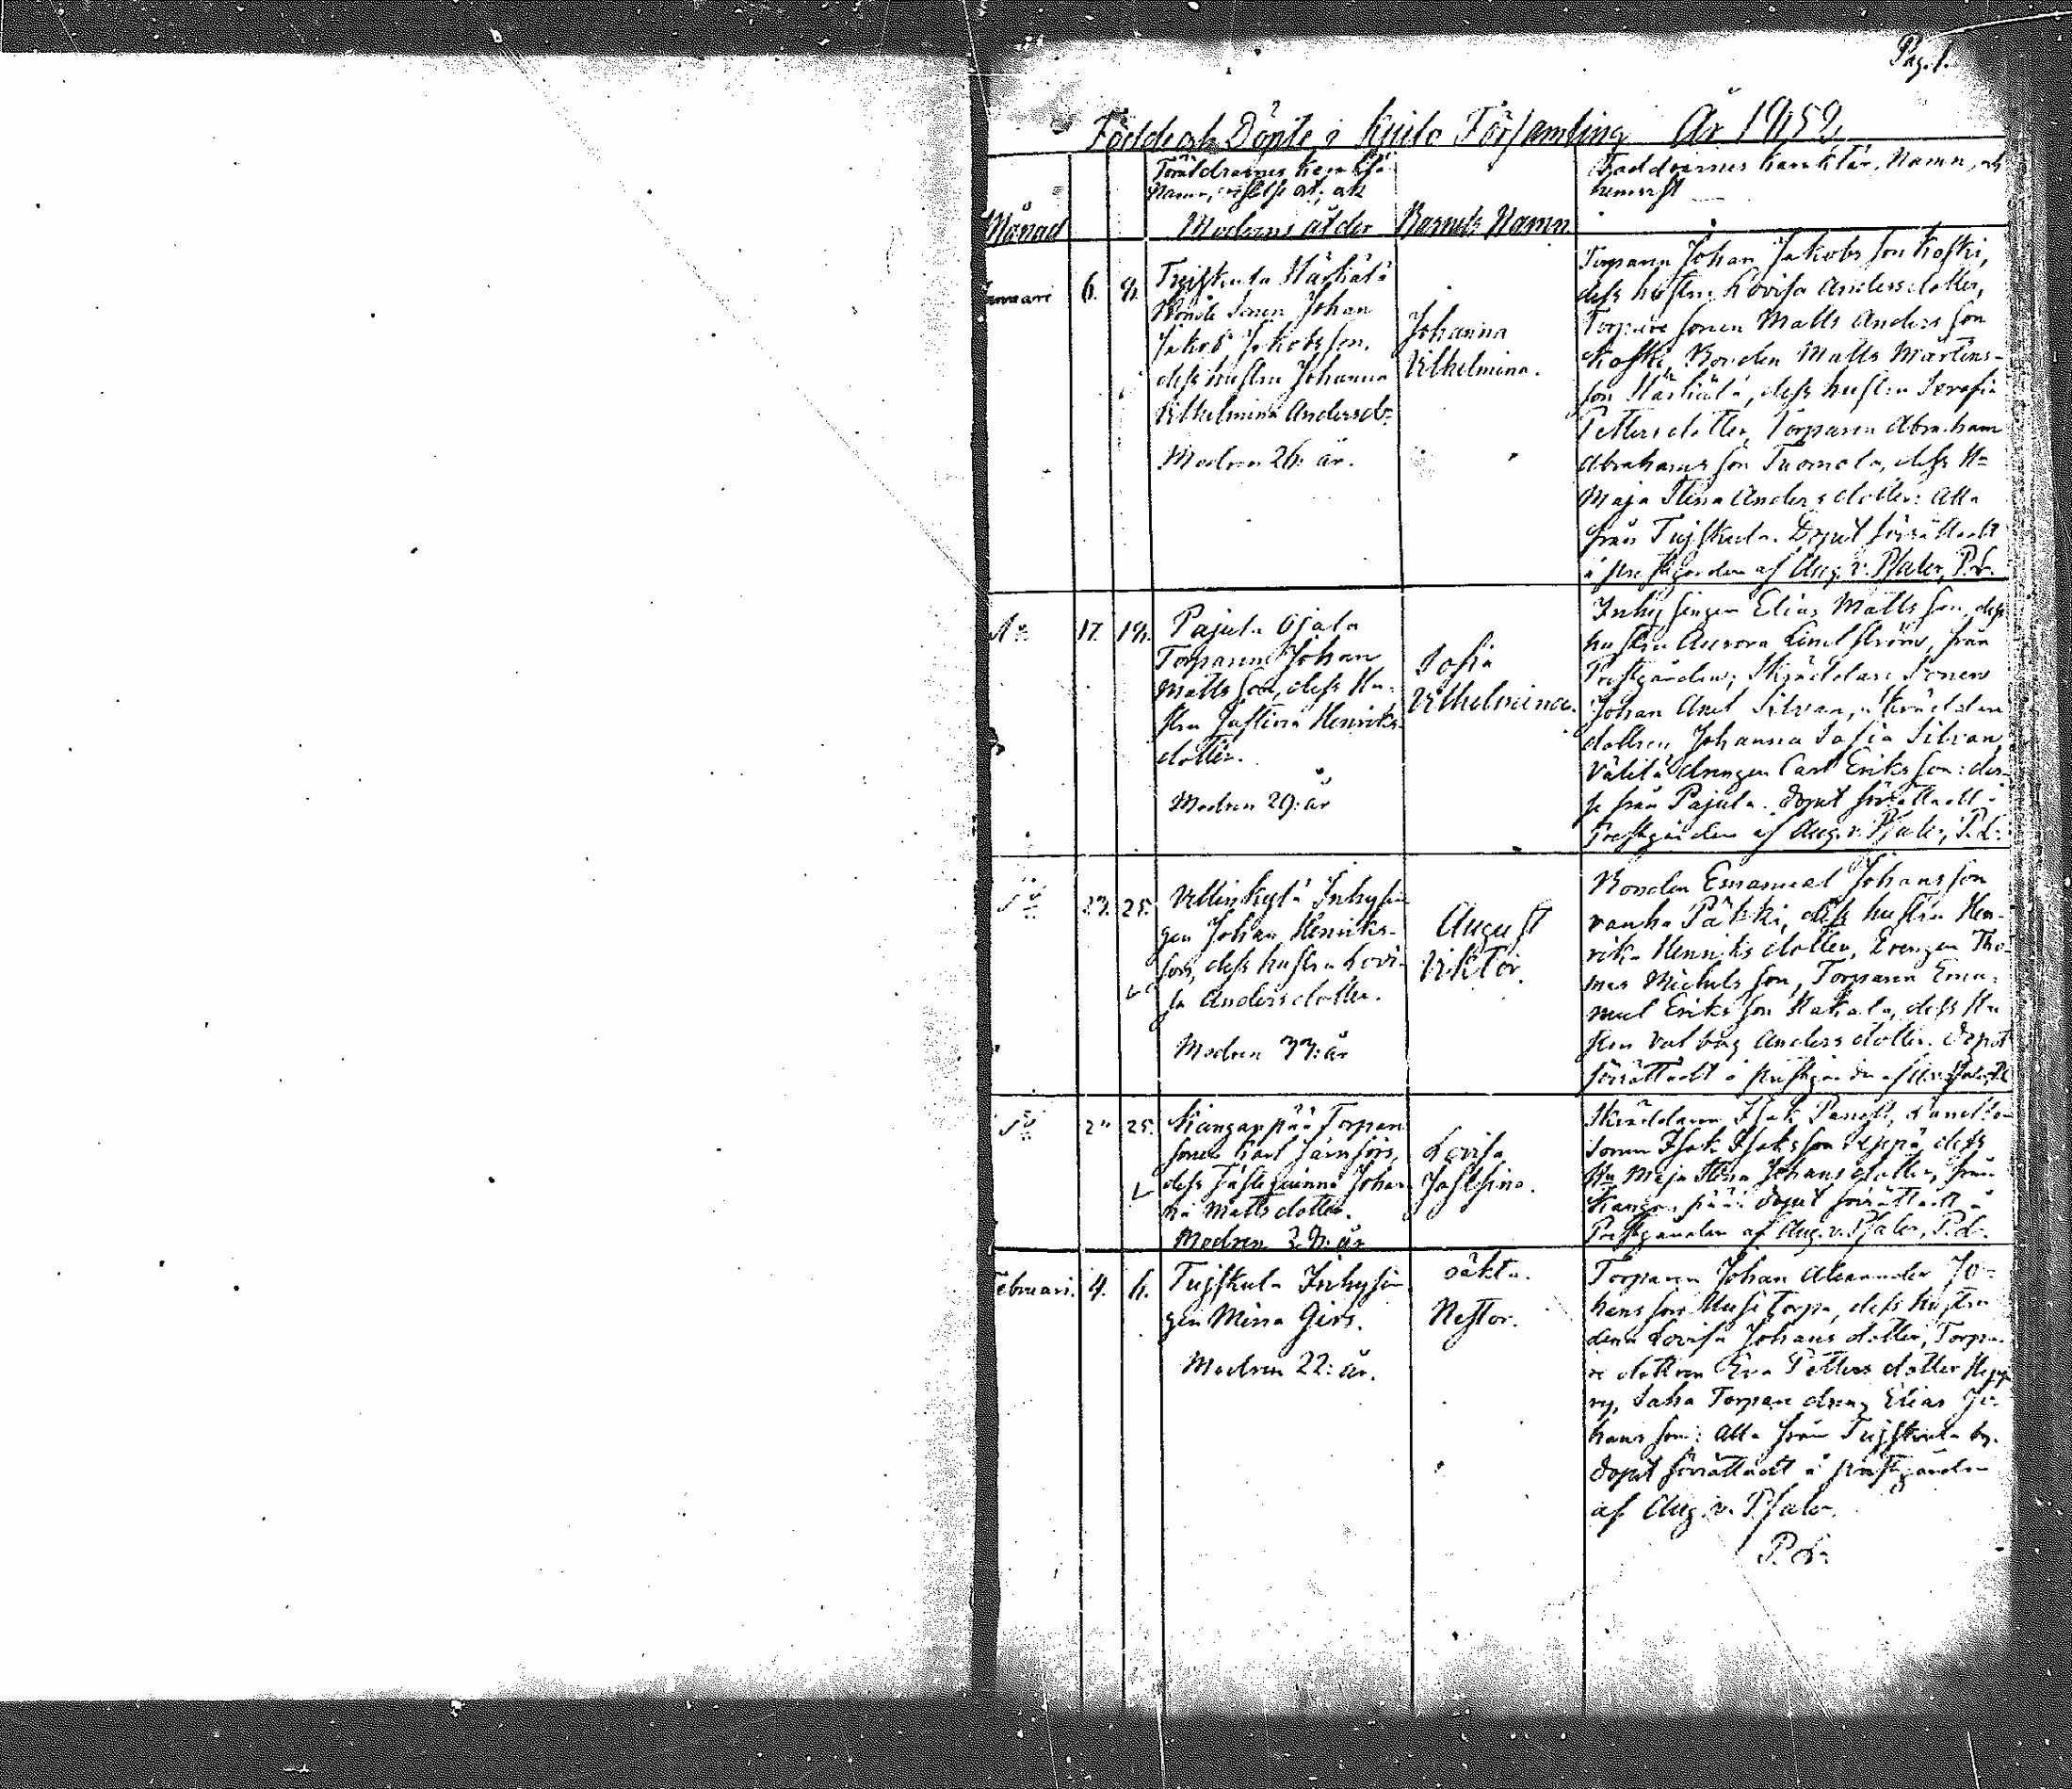 Pag. 1.
Födde och Döpte i Kjulo Församling År 1852,
Månad
Föräldrarnes karaktär
Namn, och
Modrens ålder
Barnets Namn
Faddrarnes karaktär, Namn, och
hemvist
Januari
6.
8.
Tujskula Härkälä
Bonde Sonen Johan
Jakob Jakobsson,
dess hustru Johanna
Vilhelmina Andersdr
Modren 26: år.
Johanna
Vilhelmina.
Torparen Johan Jakobsson Koski,
dess hustru Lovisa Andersdotter,
Torpare sonen Matts Andersson
Koski, Bonden Matts Martins-
son Härkälä, dess hustru Serafia
Pettersdotter, Torparen Abraham
Abrahamsson Tuomola, dess Hu
Maja Stina Andersdotter: alla
från Tujskula. Dopet förrättadt
i prestgården af Aug. v. Pfaler, P.L.
Do
17.
18.
Pajula Ojala
Torparen Johan
Mattsson, dess Hu-
stru Justina Henriks-
dotter.
Modren 29: år
Sofia
Vilhelmina.
Inhysingen Elias Mattsson, dess
hustru Aurora Lindström, från
Prestgården; Skräddare Sonen
Johan Axel Silvan, Skräddare
dottren Johanna Sofia Silvan,
Välitä drengen Carl Eriksson: des-
se från Pajula. Dopet förrättadt i
Prestgården af Aug. v. Pfaler, P.L.
Do
23.
25.
Vellinkylä Inhysin
gen Johan Henriks-
son, dess hustru Lovi-
sa Andersdotter.
Modren 33: år
August
Viktor.
Bonden Emanuel Johansson
vanha Päkki, dess hustru Hen-
rika Henriksdotter, Drengen Tho-
mas Michelsson, Torparen Ema-
nuel Eriksson Hakala, dess Hu
stru Valborg Andersdotter. Dopet
förrättadt i prestgården af
Do
25.
Kanganpää Torpare
sonen Karl Järnfors,
dess Fästeqvinna Johan
na Mattsdotter.
Modren
Lovisa
Josefina.
Skräddaren Isak
sonen Isak Isaksson Seppä, dess
Hu Maja Stina Johansdotter, från
Kanganpää. Dopet förrättadt i
Prestgården af Aug. v. Pfaler, P.L.
Februari.
4.
6.
Tujskula Inhysin
gen Mina Girs.
Modren 22: år.
oäkta.
Nestor.
Torparen Johan Alexander Jo-
hansson Uusi Torpa, dess hustru
Lovisa Johansdotter, Torpa-
re dottren Eva Pettersdotter
Saha Torpare dreng Elias Jo-
hansson: Alla från Tujskula by.
Dopet förrättadt i prestgården
af Aug. v. Pfaler.
P.L.